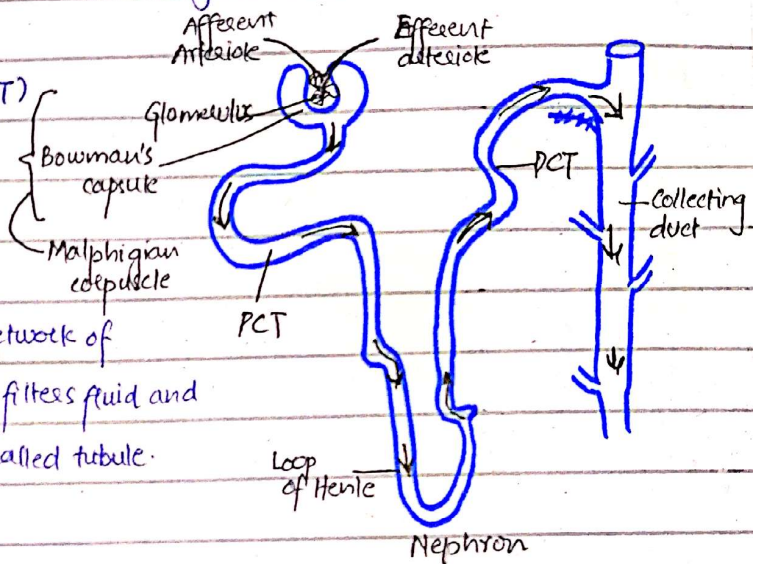 Afferent
Arteriole
Efferent
arteriole
T)
Glomerulus
Bowman's
capsule
Malphigian
corpuscle
PCT
DCT
Collecting
duct
etwork of
filters fluid and
alled tubule.
Loop
of Henle
Nephron